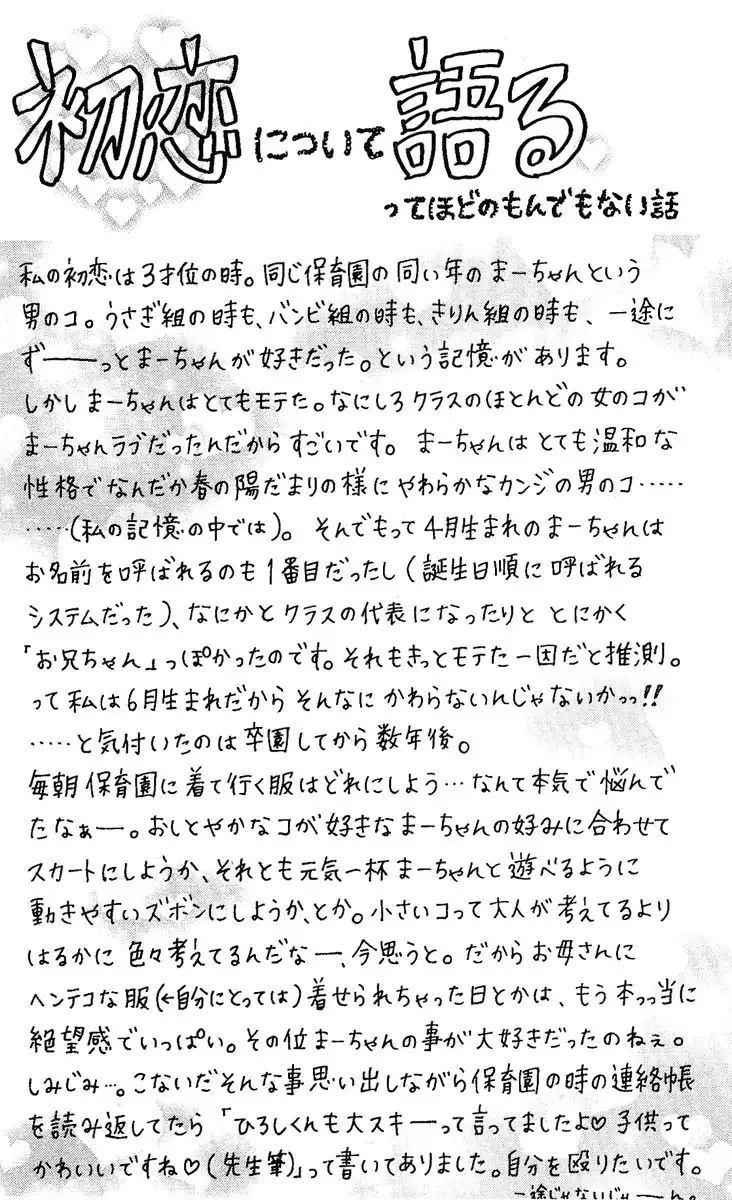 初恋について語る
ってほどのもんでもない話
私の初恋は3才位の時。同じ保育園の同い年のまーちゃんという
男のコ。うさぎ組の時も、バンビ組の時も、きりん組の時も、一途に
ずーーーっとまーちゃんが好きだった。という記憶があります。
しかしまーちゃんはとてもモテた。なにしろクラスのほとんどの女のコが
まーちゃんラブだったんだからすごいです。まーちゃんはとても温和な
性格でなんだか春の陽だまりの様にやわらかなカンジの男のコ……
……(私の記憶の中では)。そんでもって4月生まれのまーちゃんは
お名前を呼ばれるのも1番目だったし(誕生日順に呼ばれる
システムだった)、なにかとクラスの代表になったりととにかく
「お兄ちゃん」っぽかったのです。それもきっとモテた一因だと推測。
って私は6月生まれだからそんなにかわらないんじゃないかっっ!!
……と気付いたのは卒園してから数年後。
毎朝保育園に着て行く服はどれにしよう…なんて本気で悩んで
たなぁー。おしとやかなコが好きなまーちゃんの好みに合わせて
スカートにしようか、それとも元気一杯まーちゃんと遊べるように
動きやすいズボンにしようか、とか。小さいコって大人が考えてるより
はるかに色々考えてるんだなー、今思うと。だからお母さんに
ヘンテコな服(←自分にとっては)着せられちゃった日とかは、もう本っっ当に
絶望感でいっぱい。その位まーちゃんの事が大好きだったのねぇ。
しみじみ…。こないだそんな事思い出しながら保育園の時の連絡帳
を読み返してたら「ひろしくんも大スキーって言ってましたよ♡子供って
かわいいですね♡(先生筆)」って書いてありました。自分を殴りたいです。
一途じゃないじゃーーん。